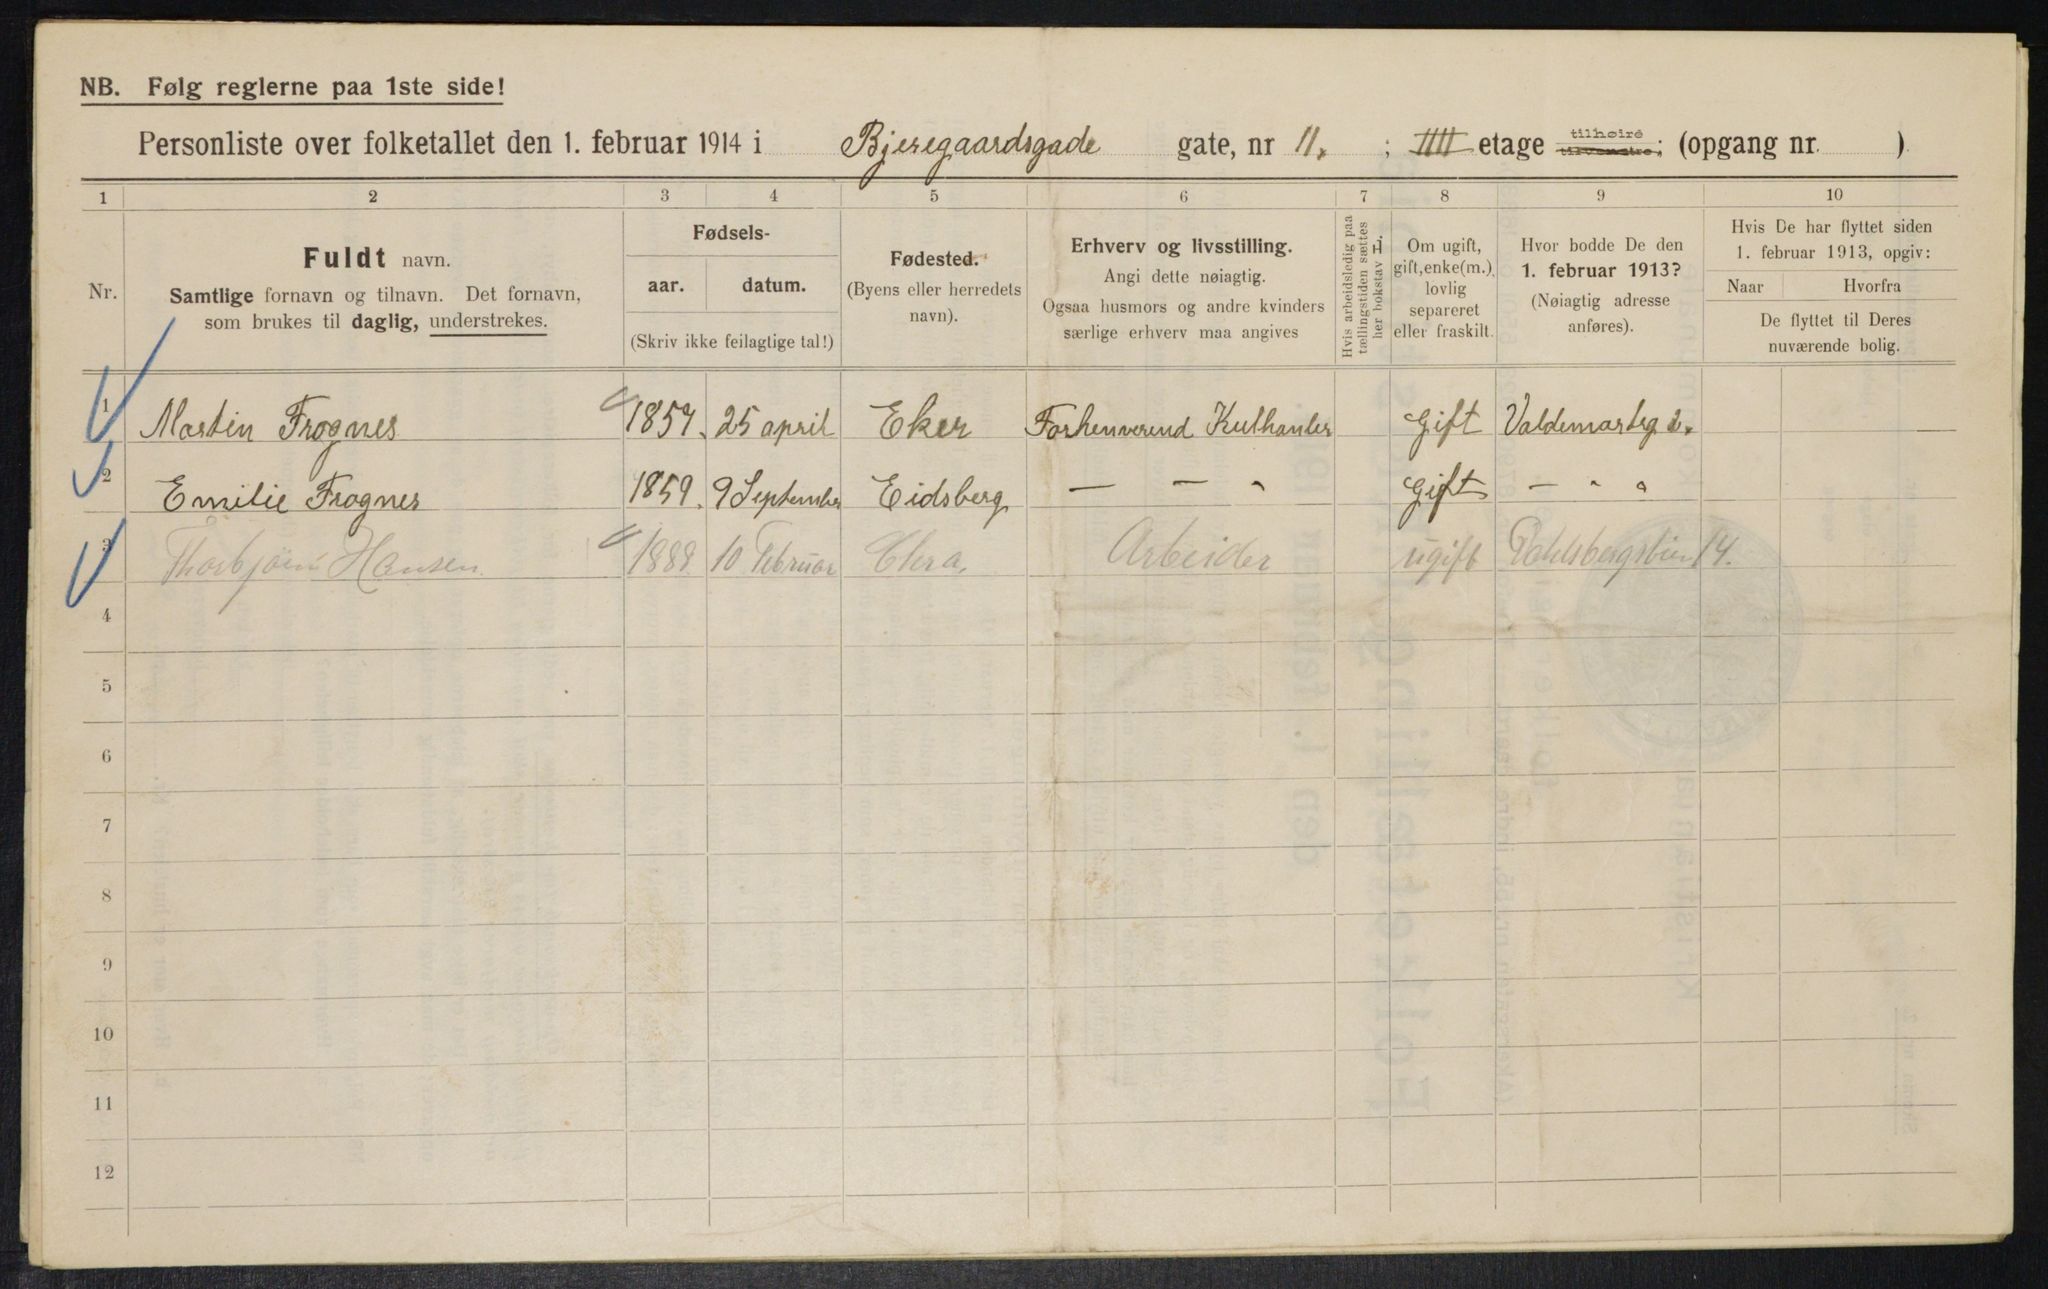 NB. Følg reglerne paa 1ste side!
Personliste over folketallet den 1. februar 1914 i Bjeregaardsgade gate, nr 11. ; IIII etage tilhøire tilvenstre; (opgang nr. )
1 2 3 4 5 6 7 8 9 10
Nr.
Fuldt navn.
Samtlige fornavn og tilnavn. Det fornavn,
som brukes til daglig, understrekes.
Fødsels-
aar. datum.
(Skriv ikke feilagtige tal!)
Fødested.
(Byens eller herredets
navn).
Erhverv og livsstilling.
Angi dette nøiagtig.
Ogsaa husmors og andre kvinders
særlige erhverv maa angives
Hvis arbeidsledig paa
tællingstiden sættes
her bokstav H.
Om ugift,
gift, enke(m.),
lovlig
separeret
eller fraskilt.
Hvor bodde De den
1. februar 1913?
(Nøiagtig adresse
anføres).
Hvis De har flyttet siden
1. februar 1913, opgiv:
Naar Hvorfra
De flyttet til Deres
nuværende bolig.
1 Martin Frognes 1857. 25 april Eker Forhenverend Kulhanler Gift Valdemarsg 2.
2 Emilie Frognes 1859. 9 September Eidsberg — — " Gift — " "
3 Thorbjørn Hansen 1888 10 Februar Chra. Arbeider ugift 14.
4
5
6
7
8
9
10
11
12